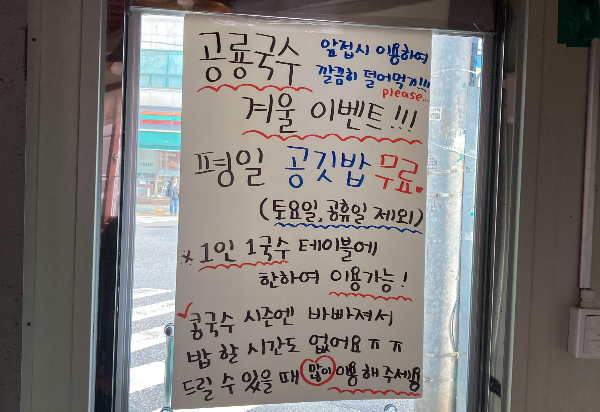 공룡국수 앞접시 이용하여
깔끔히 덜어먹기!!!
please...
겨울 이벤트!!!
평일 공깃밥 무료
(토요일, 공휴일 제외)
* 1인 1국수 테이블에
한하여 이용가능!
✓콩국수 시즌엔 바빠져서
밥 할 시간도 없어요 ㅠㅠ
드릴 수 있을 때 많이 이용해주세용